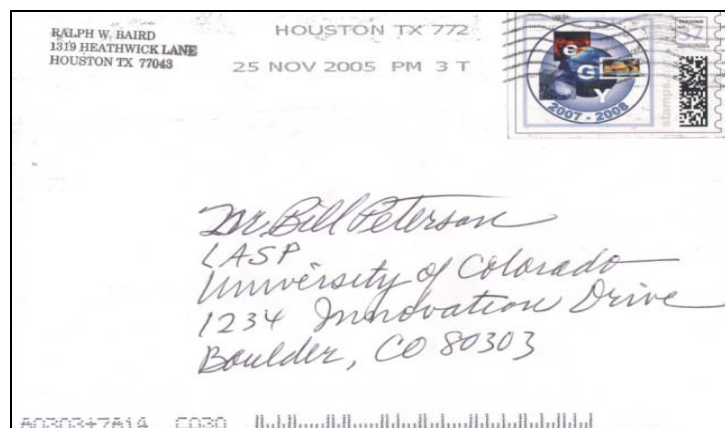 RALPH W. BAIRD
1319 HEATHWICK LANE
HOUSTON TX 77043
HOUSTON TX 772
25 NOV 2005 PM 3 T
e
G
Y
2007 - 2008
37
stamps.
Mr. Bill Peterson
LASP
University of Colorado
1234 Innovation Drive
Boulder, CO 80303